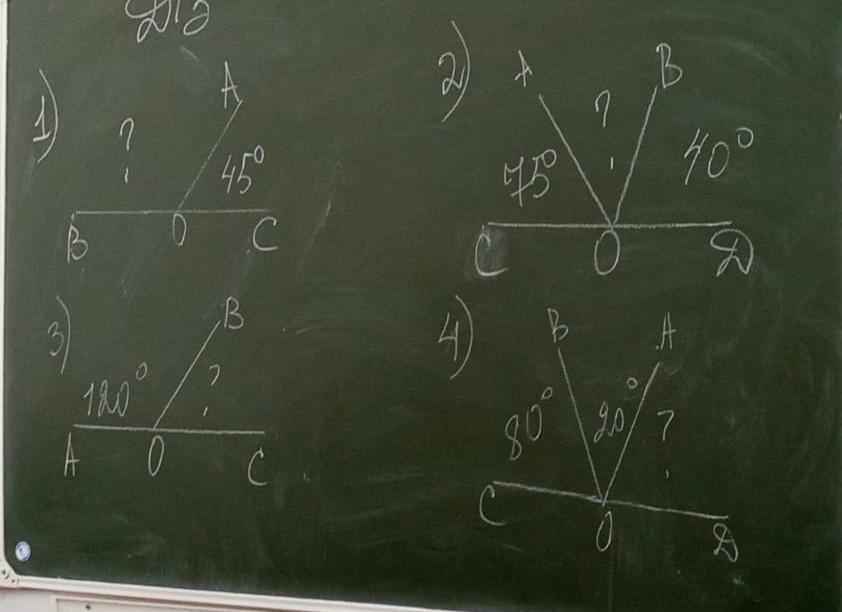 Д/з
1)
A
?
45°
B O C
2)
A B
?
75° 40°
C O Д
3)
B
120° ?
A O C
4)
B A
80° 20° ?
C O Д